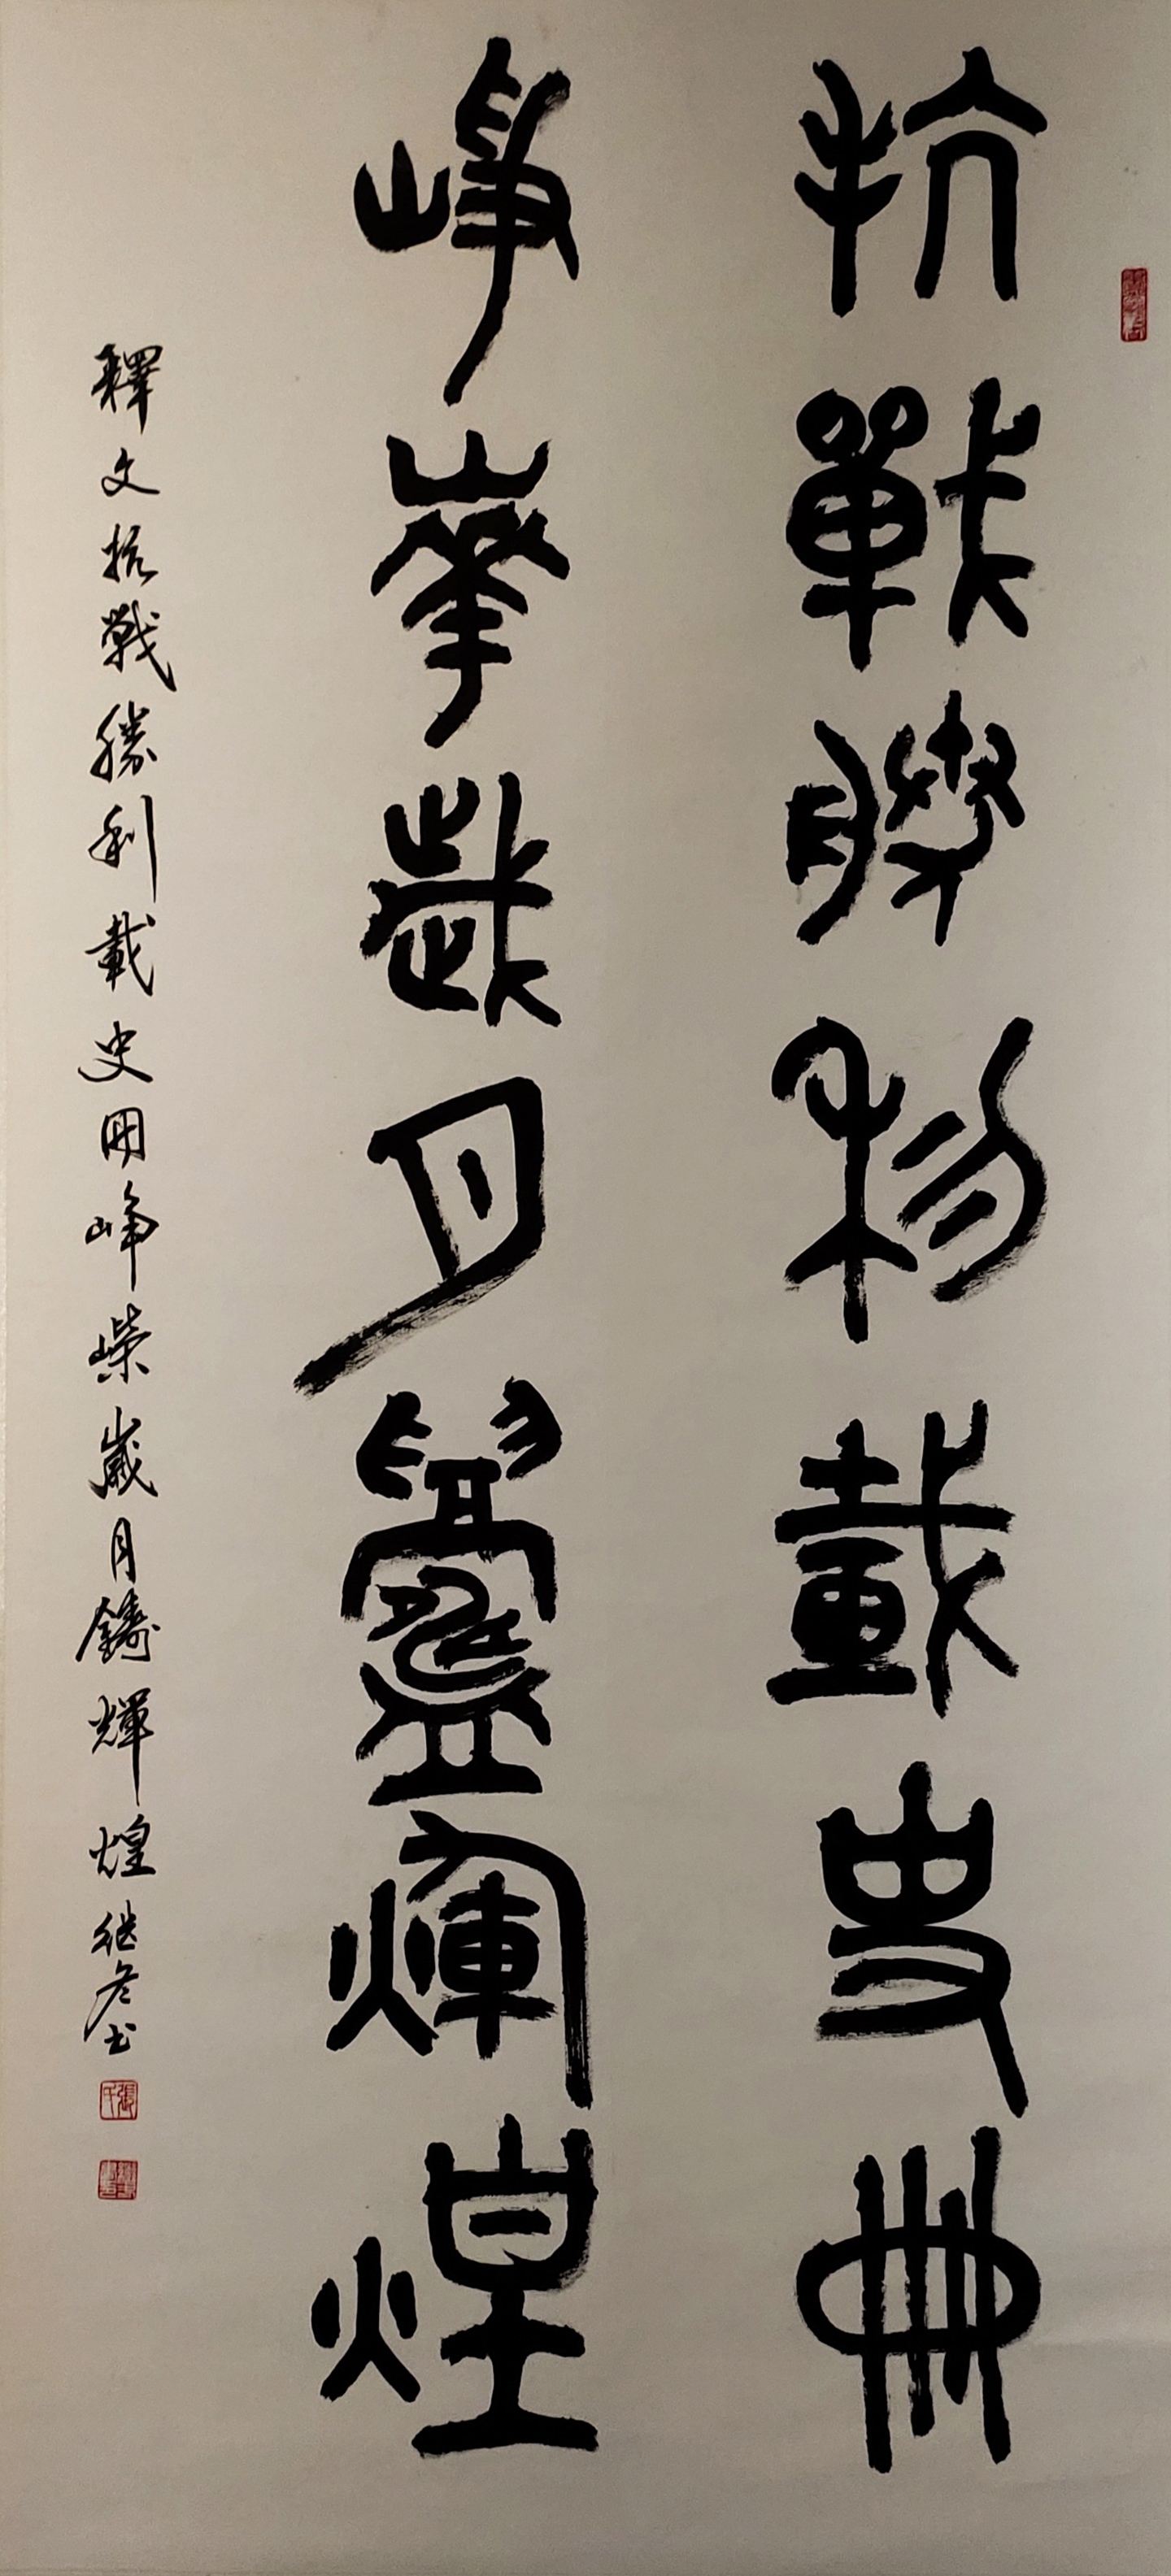 抗戰勝利載史冊
崢嶸歲月鑄輝煌
釋文抗戰勝利載史冊崢嶸歲月鑄輝煌继彦书
張氏